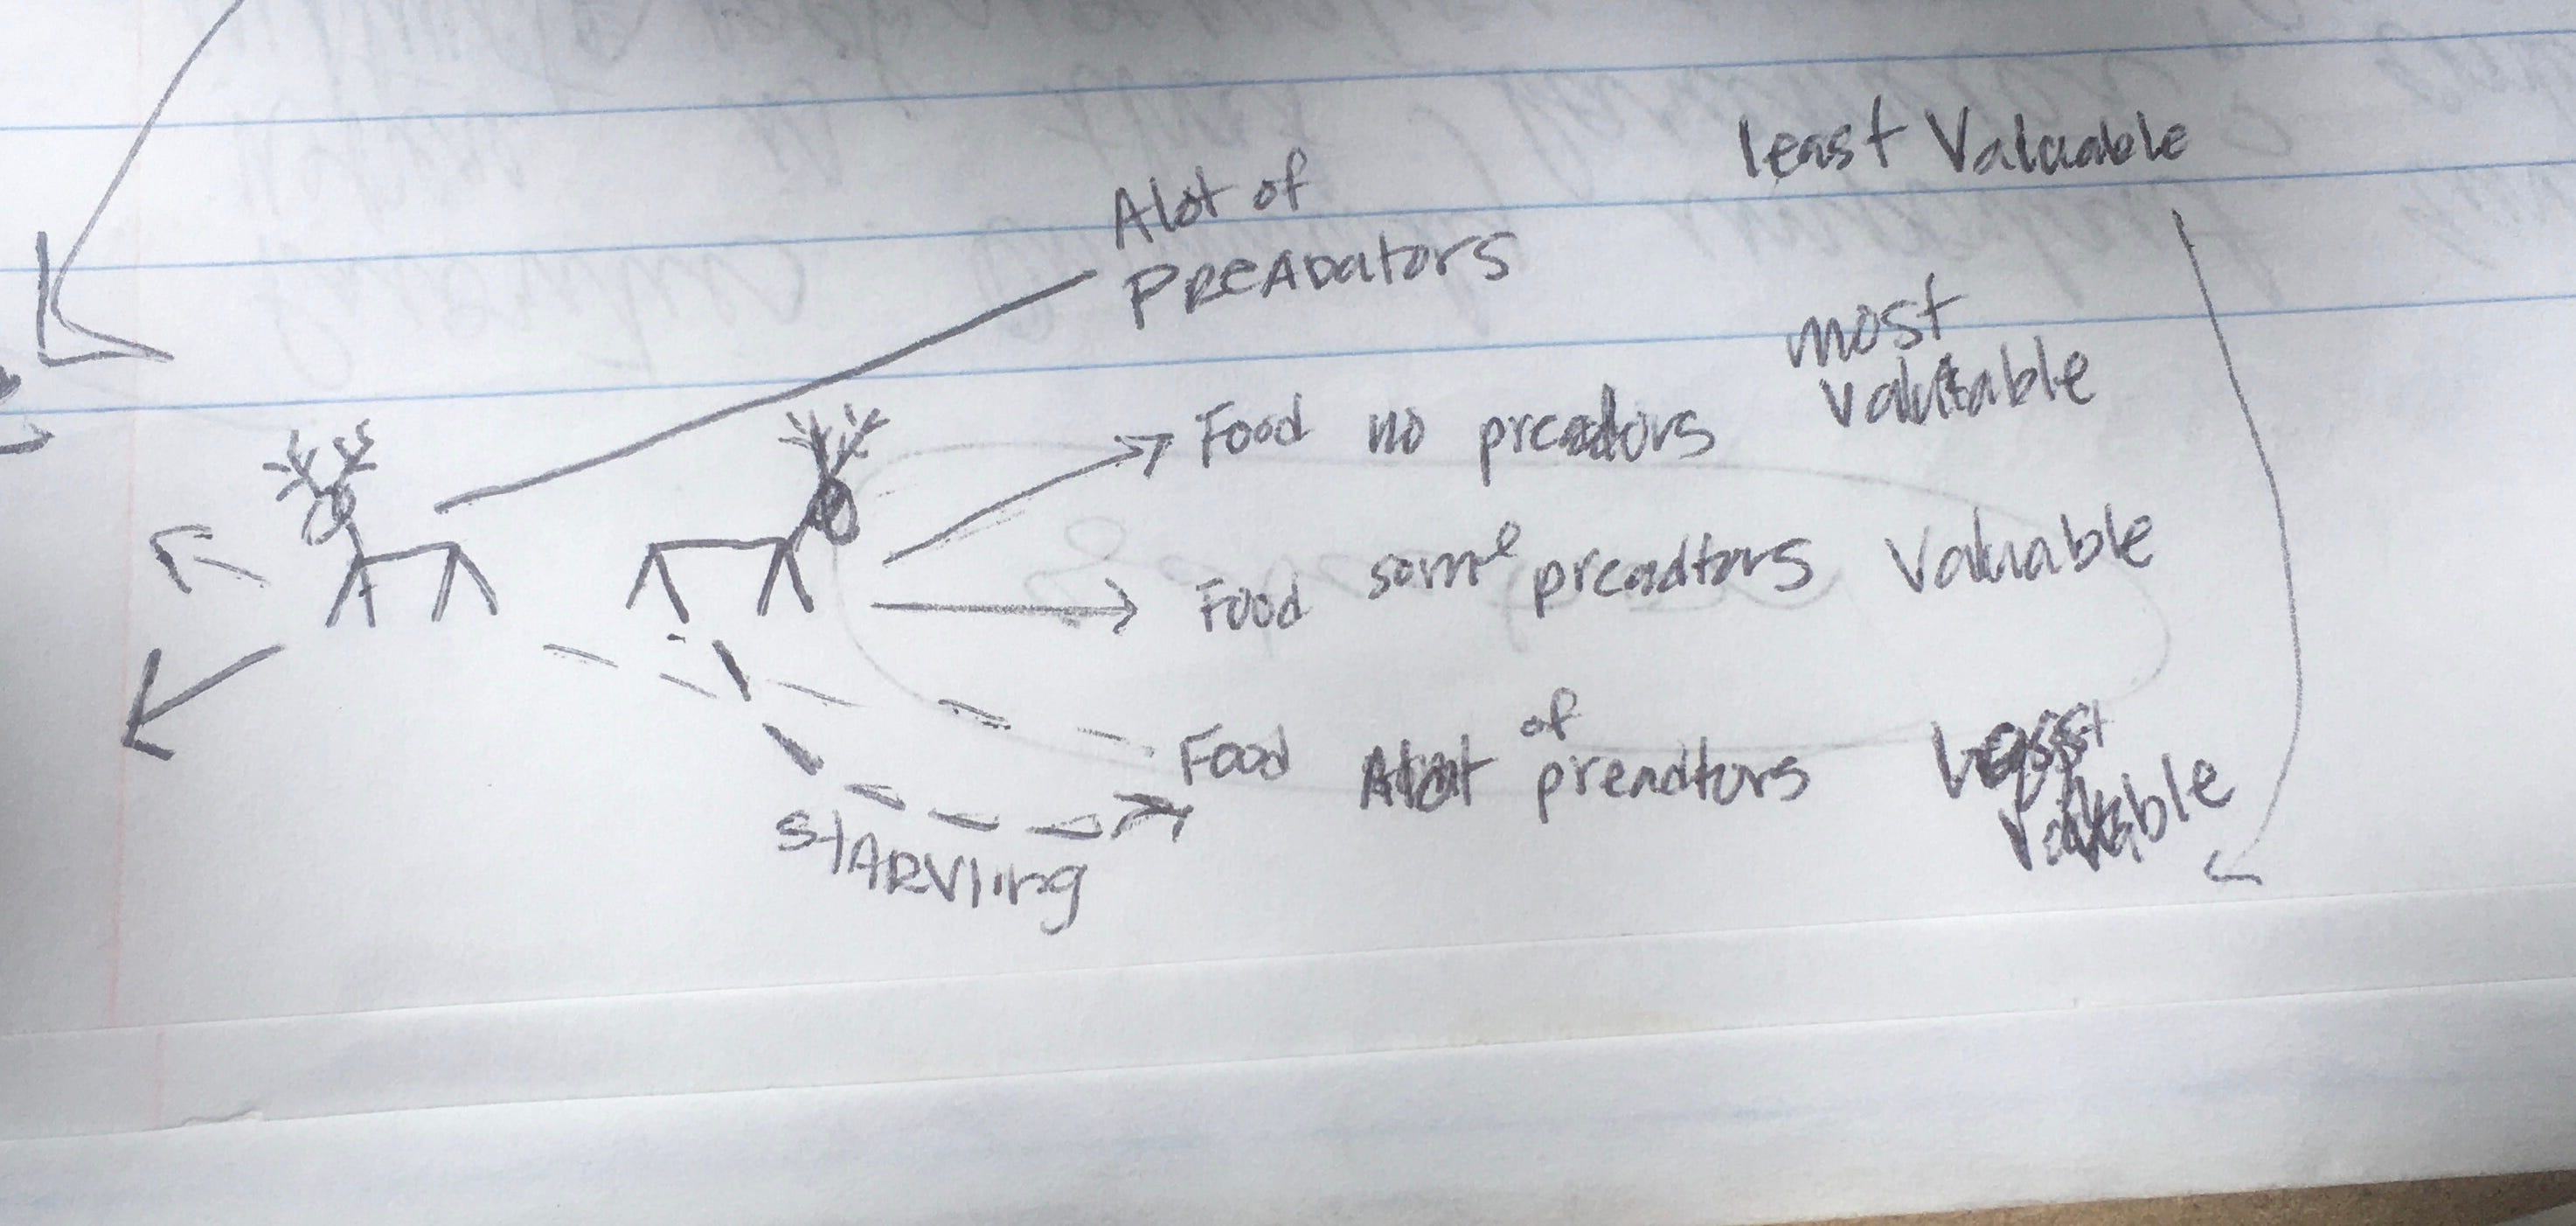 least Valuable
Alot of
PREADators
most
Valuable
Food no preadors
Food some preadtors Valuable
Food Alot of preadtors
Valuable
STARVIing